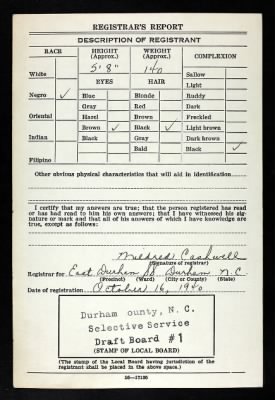 REGISTRAR'S REPORT
DESCRIPTION OF REGISTRANT
RACE HEIGHT (Approx.) WEIGHT (Approx.) COMPLEXION
5' 8" 140
White Sallow
EYES HAIR Light
Negro ✓ Blue Blonde Ruddy
Gray Red Dark
Oriental Hazel Brown Freckled
Brown ✓ Black ✓ Light brown
Indian Black Gray Dark brown
Bald Black ✓
Filipino
Other obvious physical characteristics that will aid in identification
I certify that my answers are true; that the person registered has read or has had read to him his own answers; that I have witnessed his signature or mark and that all of his answers of which I have knowledge are true, except as follows:
Mildred Cashwell
(Signature of registrar)
Registrar for East Durham Durham N.C.
(Precinct) (Ward) (City or County) (State)
Date of registration October 16, 1940
Durham ounty, N. C.
Selective Service
Draft Board #1
(STAMP OF LOCAL BOARD)
(The stamp of the Local Board having jurisdiction of the
registrant shall be placed in the above space.)
16—17105